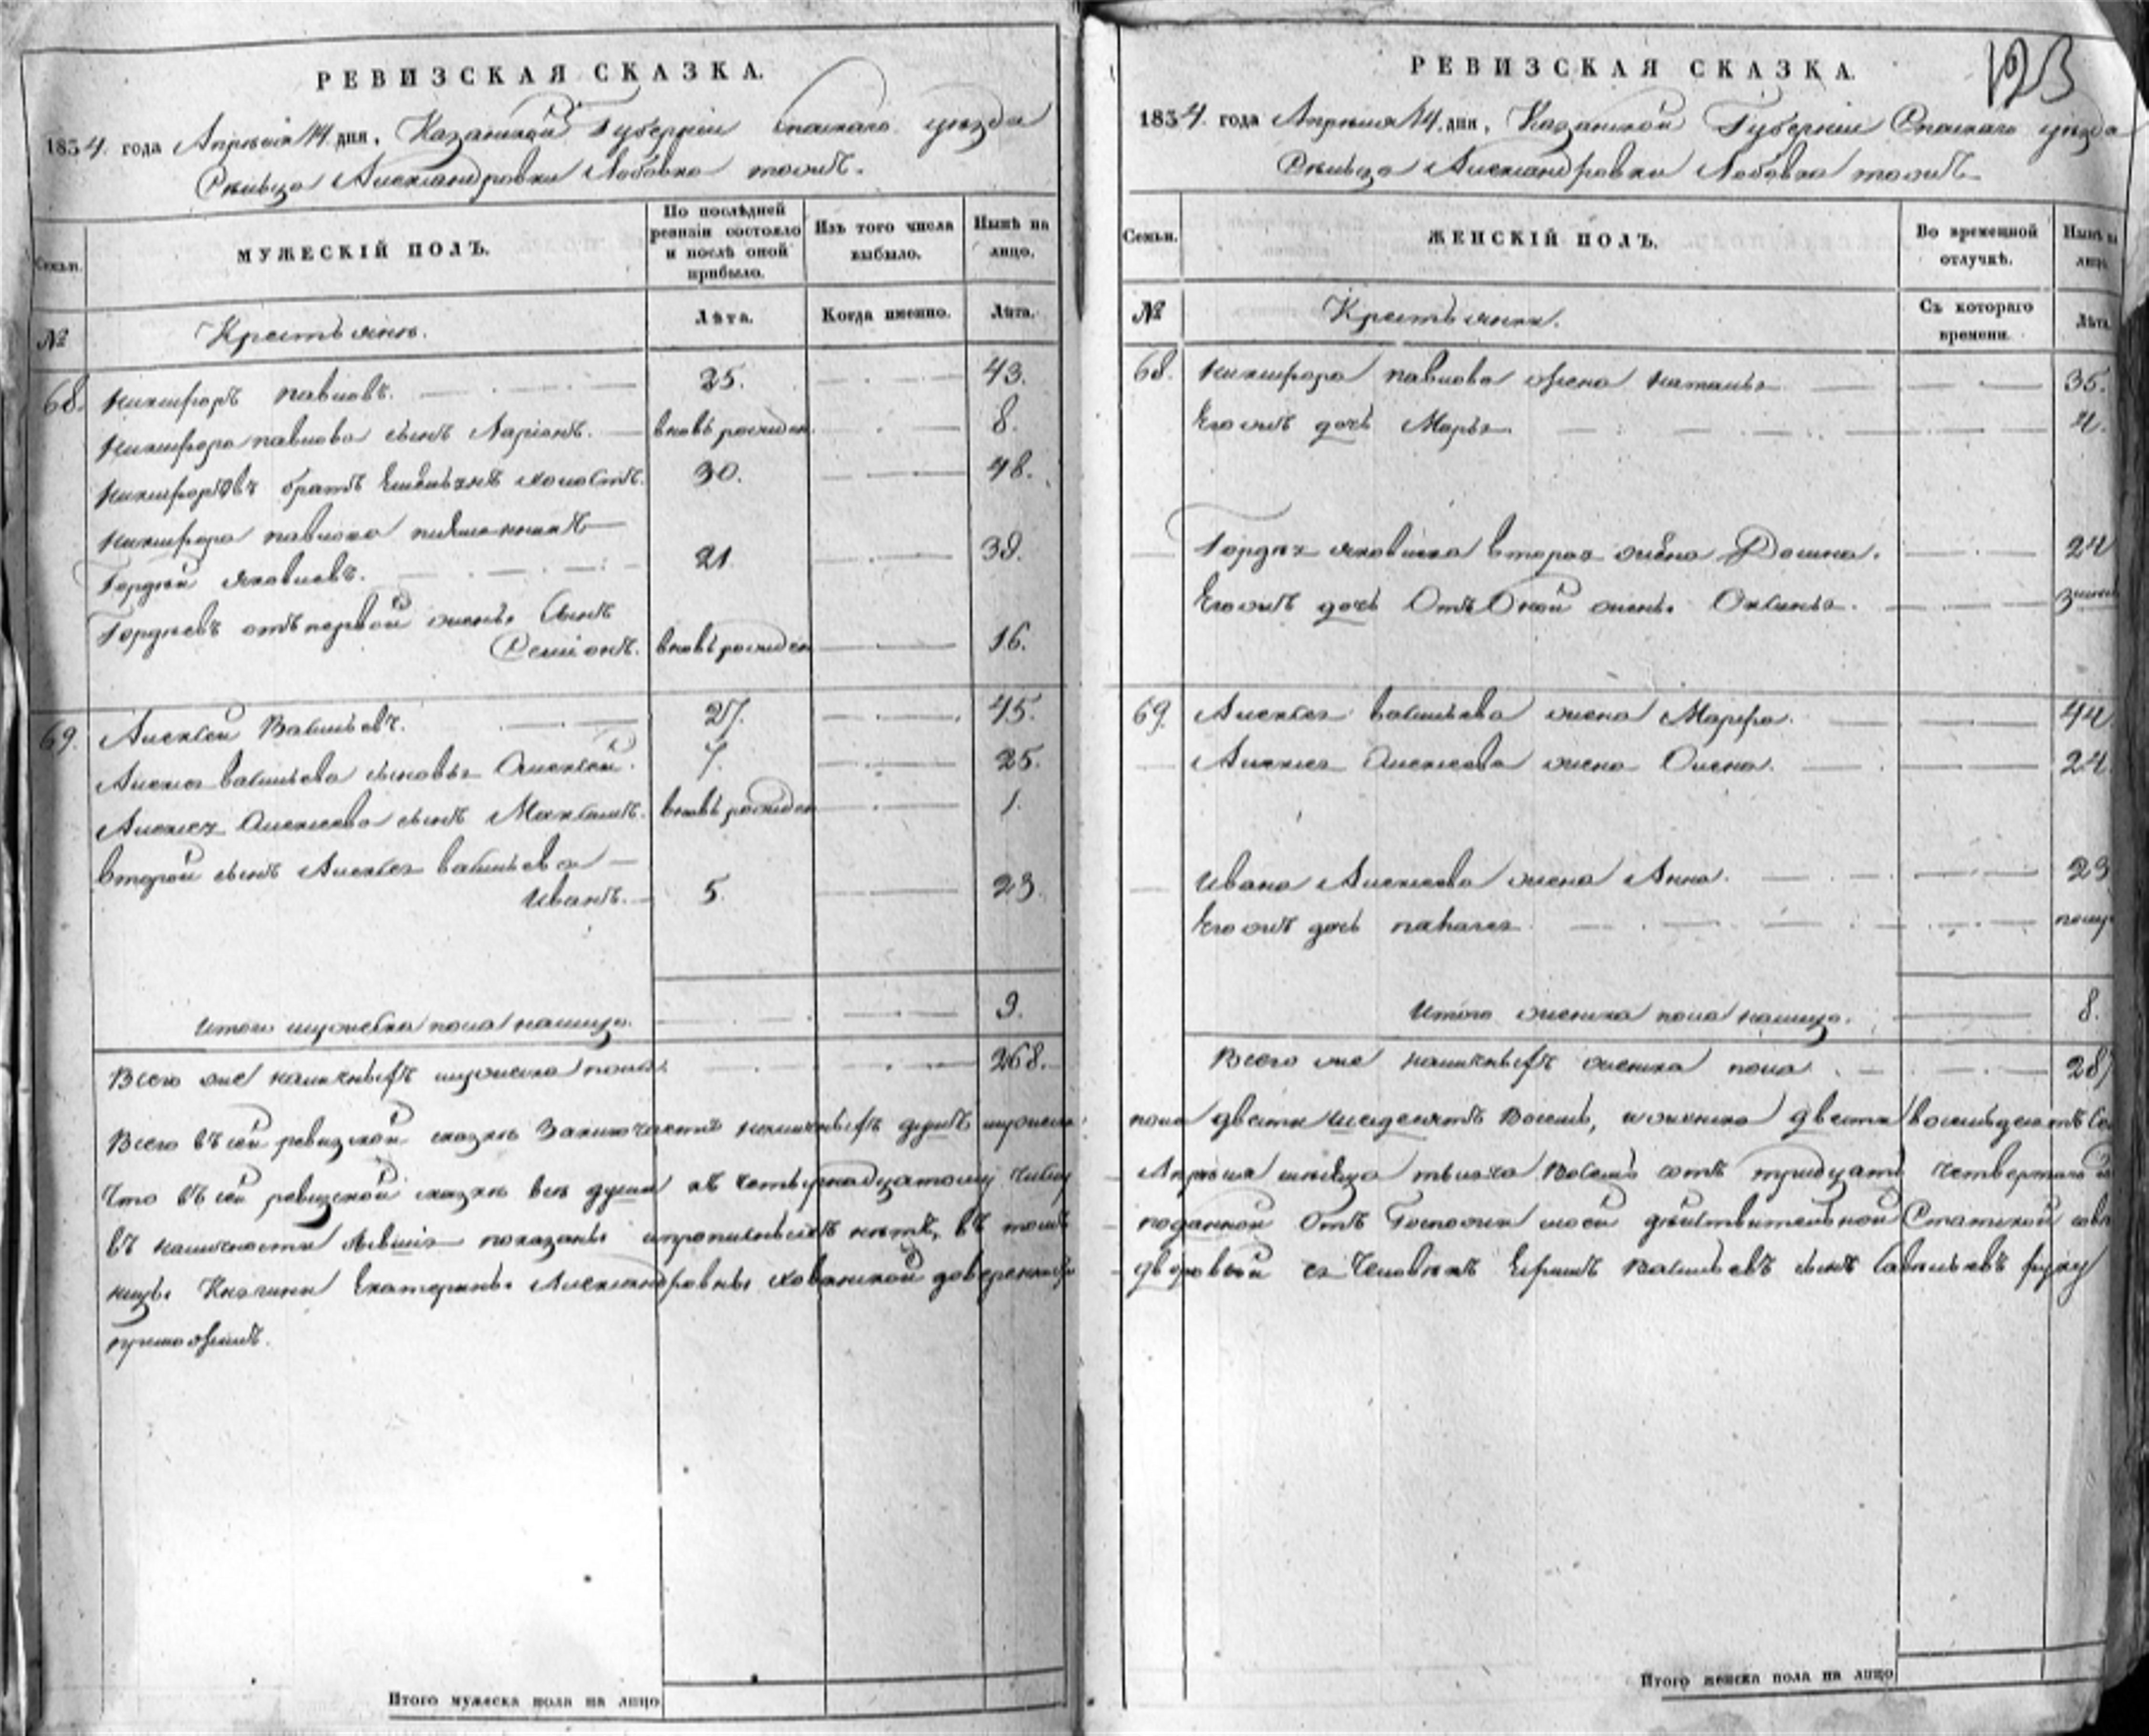 РЕВИЗСКАЯ СКАЗКА.
1834. года Апрѣля 14. дня, Казанской Губерніи Спаскаго уезда
Сельца Александровки Лобовка тожъ.
Семьи.
МУЖЕСКІЙ ПОЛЪ.
По послѣдней ревизіи состояло и послѣ оной прибыло.
Изъ того числа выбыло.
Нынѣ на лицо.
№
Крестьяне.
Лѣта.
Когда именно.
Лѣта.
68. Никифоръ Павловъ. 25. 43.
Никифора Павлова сынъ Ларіонъ. вновь рожден. 8.
Никифоровъ братъ холостъ. 30. 48.
Никифора Павлова племянникъ
Гордей Яковлевъ. 21. 39.
Гордеевъ отъ первой жены сынъ
Семіонъ. вновь рожден 16.
69. Алексей Васильевъ. 27. 45.
Алексея Васильева сыновья Алексей. 7. 25.
Алексея Алексеева сынъ Максимъ. вновь рожден 1.
Второй сынъ Алексея Васильева
Иванъ. 5. 23.
Итого мужеска пола налицо. 9.
Всего же наличныхъ мужеска пола 268.
Всего въ сей ревизской сказке заключается наличныхъ душъ мужеска
Что въ сей ревизской сказке все души къ четырнадцатому числу
въ наличности показаны и прописныхъ нетъ, въ томъ
Княгини Екатерины Александровны Хованской
приложилъ.
Итого мужеска пола на лицо
РЕВИЗСКАЯ СКАЗКА.
123
1834. года Апрѣля 14. дня, Казанской Губерніи Спаскаго уезда
Сельца Александровки Лобовка тожъ
Семьи.
ЖЕНСКІЙ ПОЛЪ.
Во временной отлучкѣ.
Нынѣ на лицо.
№
Крестьяне.
Съ котораго времени.
Лѣта.
68. Никифора Павлова жена Наталья 35.
Его жъ дочь Марья 4.
Гордея Яковлева вторая жена Домна. 24
Его жъ дочь отъ оной жены Оксинья. 3
69. Алексея Васильева жена Марфа. 44
Алексея Алексеева жена Олена. 24
Ивана Алексеева жена Анна. 23
Его жъ дочь
Итого женска пола налицо. 8.
Всего же наличныхъ женска пола 287
пола двести шесдесятъ восемь, и женска двести восемьдесятъ
Апреля месяца тысяча восемь сотъ тридцать четвертаго
поданной отъ Госпожи моей действительной Статской
дворовой ея человекъ Ефимъ Васильевъ сынъ руку
Итого женска пола на лицо